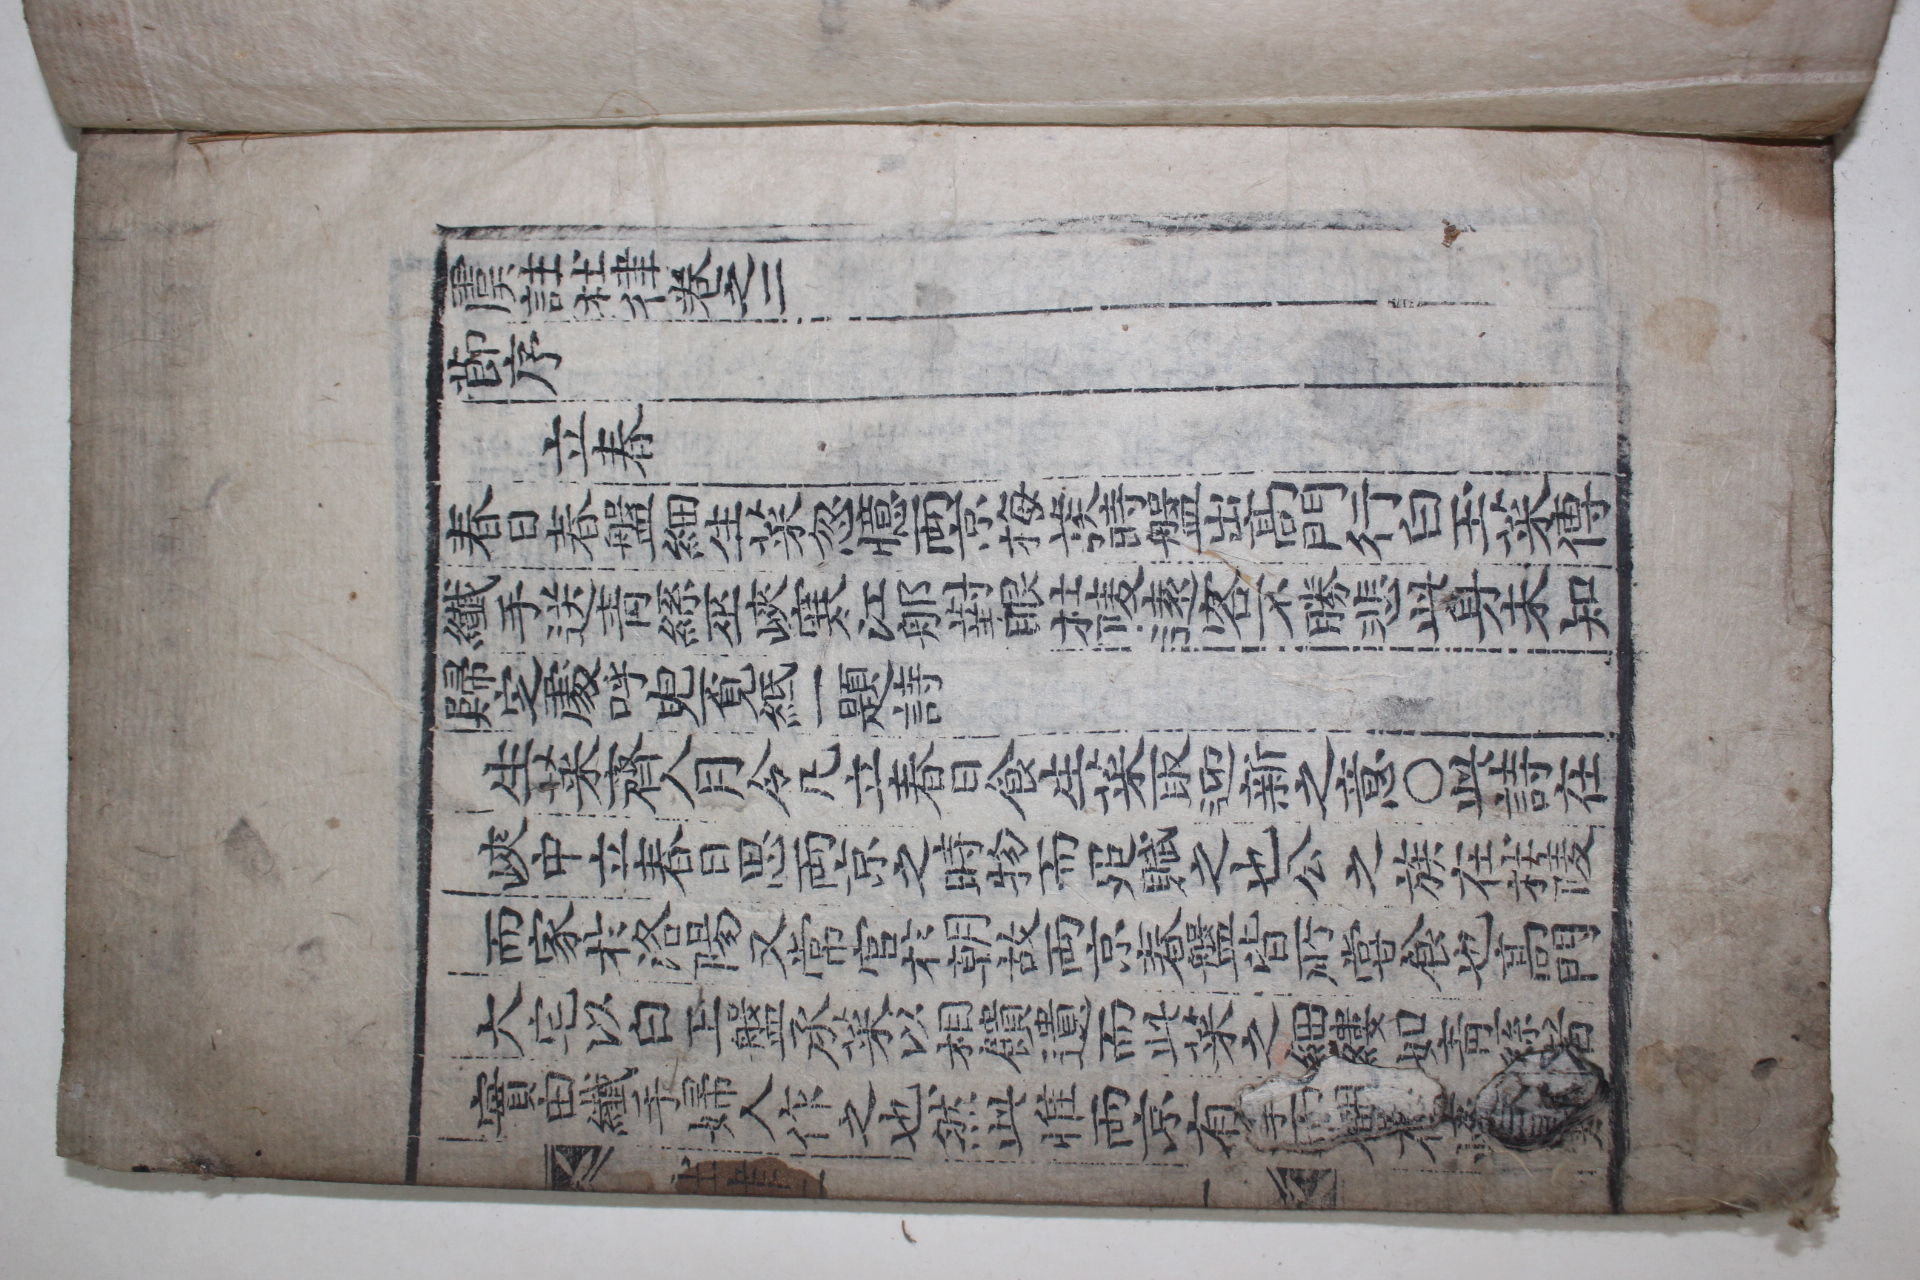 虞註杜律卷之二
節序
立春
春日春盤細生菜忽憶兩京梅發時盤出高門行白玉菜傳
纖手送青絲巫峽寒江那對眼杜陵遠客不勝悲此身未知
歸定處呼兒覓紙一題詩
生菜齊人月令凡立春日食生菜取迎新之意〇此詩在
峽中立春日思兩京之時物而起賦之也公之族在杜陵
而家於洛陽又常官於朝故兩京春盤皆所嘗食也高門
大宅以白玉盤承菜以相饋遺而此菜之細縷如青絲者
實由纖手婦人作之也然此惟兩京有